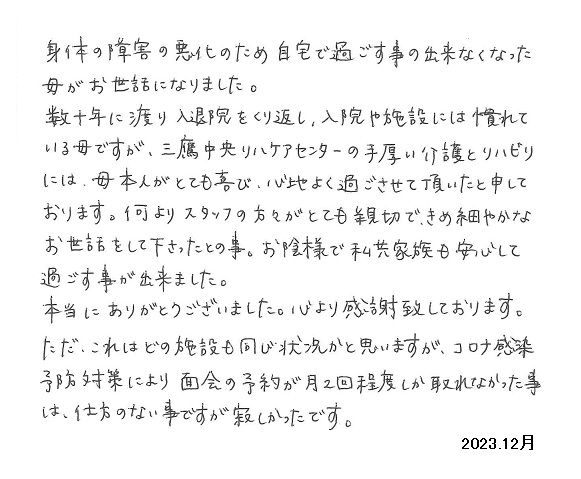 身体の障害の悪化のため自宅で過ごす事の出来なくなった
母がお世話になりました。
数十年に渡り入退院をくり返し、入院や施設には慣れて
いる母ですが、三鷹中央リハケアセンターの手厚い介護とリハビリ
には、母本人がとても喜び、心地よく過ごさせて頂いたと申して
おります。何よりスタッフの方々がとても親切で、きめ細やかな
お世話をして下さったとの事。お陰様で私共家族も安心して
過ごす事が出来ました。
本当にありがとうございました。心より感謝致しております。
ただ、これはどの施設も同じ状況かと思いますが、コロナ感染
予防対策により面会の予約が月2回程度しか取れなかった事
は、仕方のない事ですが寂しかったです。
2023.12月